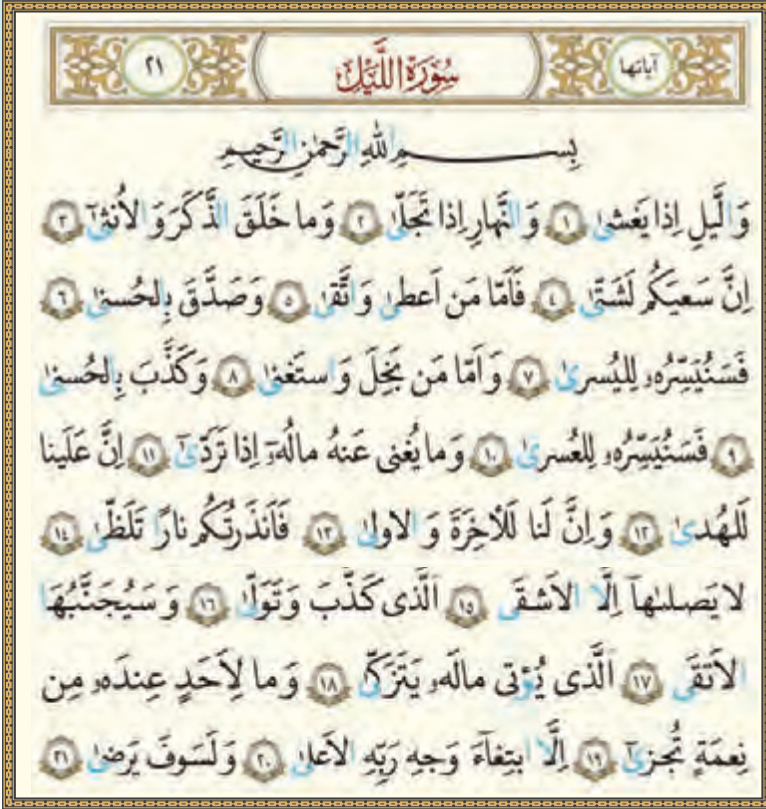 آیاتها سُورَةُ اللَّيْلِ ٢١
بِسـمِ اللّٰهِ الرَّحمٰنِ الرَّحيمِ
وَ الَّيلِ اِذا يَغشىٰ ١ وَ النَّهارِ اِذا تَجَلّىٰ ٢ وَ ما خَلَقَ الذَّكَرَ وَ الاُنثىٰٓ ٣
اِنَّ سَعيَكُم لَشَتّىٰ ٤ فَاَمّا مَن اَعطىٰ وَ اتَّقىٰ ٥ وَ صَدَّقَ بِالحُسنىٰ ٦
فَسَنُيَسِّرُهۥ لِليُسرىٰ ٧ وَ اَمّا مَن بَخِلَ وَ استَغنىٰ ٨ وَ كَذَّبَ بِالحُسنىٰ
٩ فَسَنُيَسِّرُهۥ لِلعُسرىٰ ١٠ وَ ما يُغنى عَنهُ مالُهۥٓ اِذا تَرَدّىٰٓ ١١ اِنَّ عَلَينا
لَلهُدىٰ ١٢ وَ اِنَّ لَنا لَلآخِرَةَ وَ الاولىٰ ١٣ فَاَنذَرتُكُم نارًا تَلَظّىٰ ١٤
لا يَصلىٰهآ اِلَّا الاَشقَى ١٥ اَلَّذى كَذَّبَ وَ تَوَلّىٰ ١٦ وَ سَيُجَنَّبُهَا
الاَتقَى ١٧ اَلَّذى يُؤتى مالَهۥ يَتَزَكّىٰ ١٨ وَ ما لِاَحَدٍ عِندَهۥ مِن
نِعمَةٍ تُجزىٰٓ ١٩ اِلَّا ابتِغآءَ وَجهِ رَبِّهِ الاَعلىٰ ٢٠ وَ لَسَوفَ يَرضىٰ ٢١